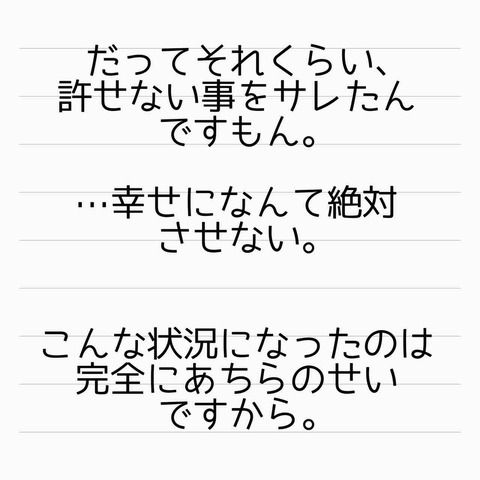 だってそれくらい、
許せない事をサレたん
ですもん。
…幸せになんて絶対
させない。
こんな状況になったのは
完全にあちらのせい
ですから。